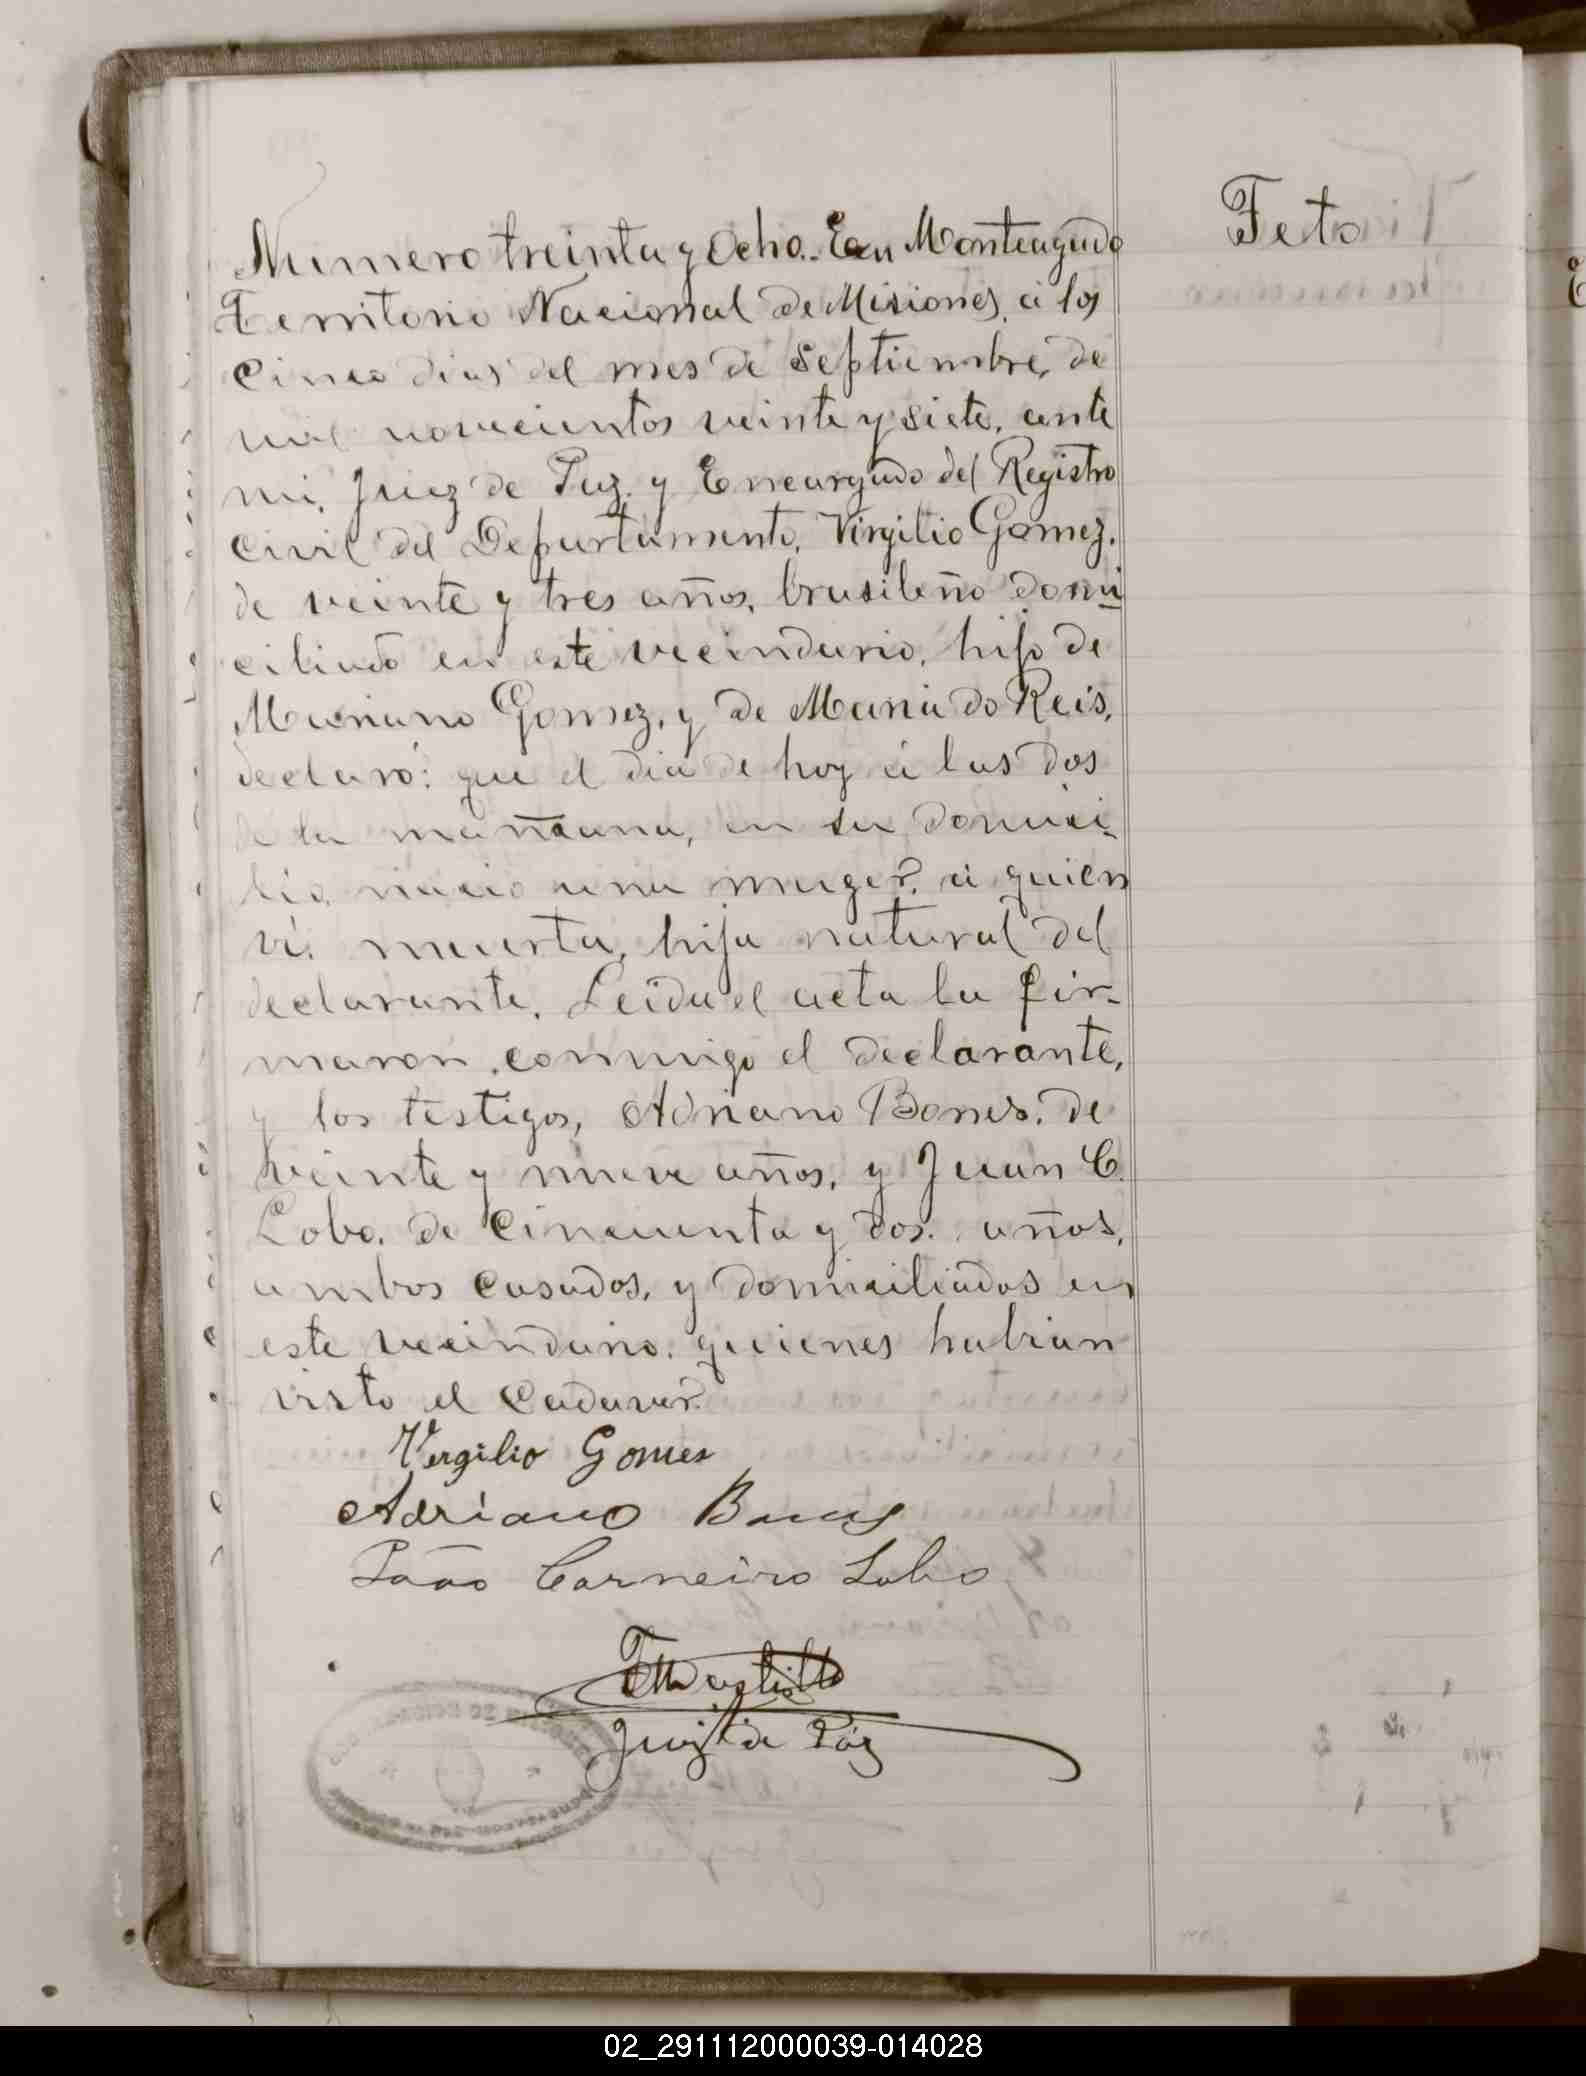 Feto
Numero treinta y Ocho.. En Monteagudo
Territorio Nacional de Misiones, á los
cinco dias del mes de Septiembre, de
mil novecientos veinte y siete, ante
mi, Juez de Paz, y Encargado del Registro
Civil del Departamento, Virgilio Gomez,
de veinte y tres años, brasileño domi
ciliado en este vecindario, hijo de
Mariano Gomez, y de Maria do Reis,
declaró: que el dia de hoy á las dos
de la mañana, en su domici-
lio, nació una muger, á quien
ví muerta, hija natural del
declarante. Leida el acta la fir-
maron conmigo el declarante,
y los testigos, Adriano Bones, de
veinte y nueve años, y Juan C.
Lobo, de cincuenta y dos años,
ambos casados, y domiciliados en
este vecindario, quienes habian
visto el cadaver.
Vergilio Gomes
Adriano
João Carneiro Lobo
Juez de Paz
02_291112000039-014028